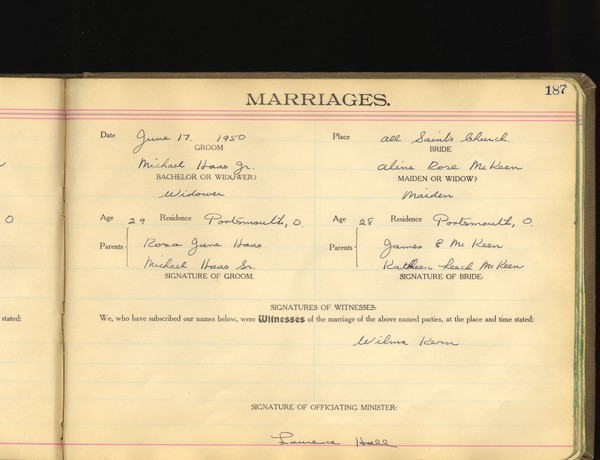 187
MARRIAGES.
Date June 17. 1950 Place All Saints Church.
GROOM BRIDE
Michael Haas Jr. Aline Rose McKeen
BACHELOR OR WIDOWER? MAIDEN OR WIDOW?
Widower Maiden
Age 29 Residence Portsmouth, O. Age 28 Residence Portsmouth, O.
Parents Rosa Jane Haas Parents James E McKeen
Michael Haas Sr. Kathleen Leech McKeen
SIGNATURE OF GROOM. SIGNATURE OF BRIDE:
SIGNATURES OF WITNESSES:
stated: We, who have subscribed our names below, were Witnesses of the marriage of the above named parties, at the place and time stated:
Wilma Kern
SIGNATURE OF OFFICIATING MINISTER:
Lawrence Hall